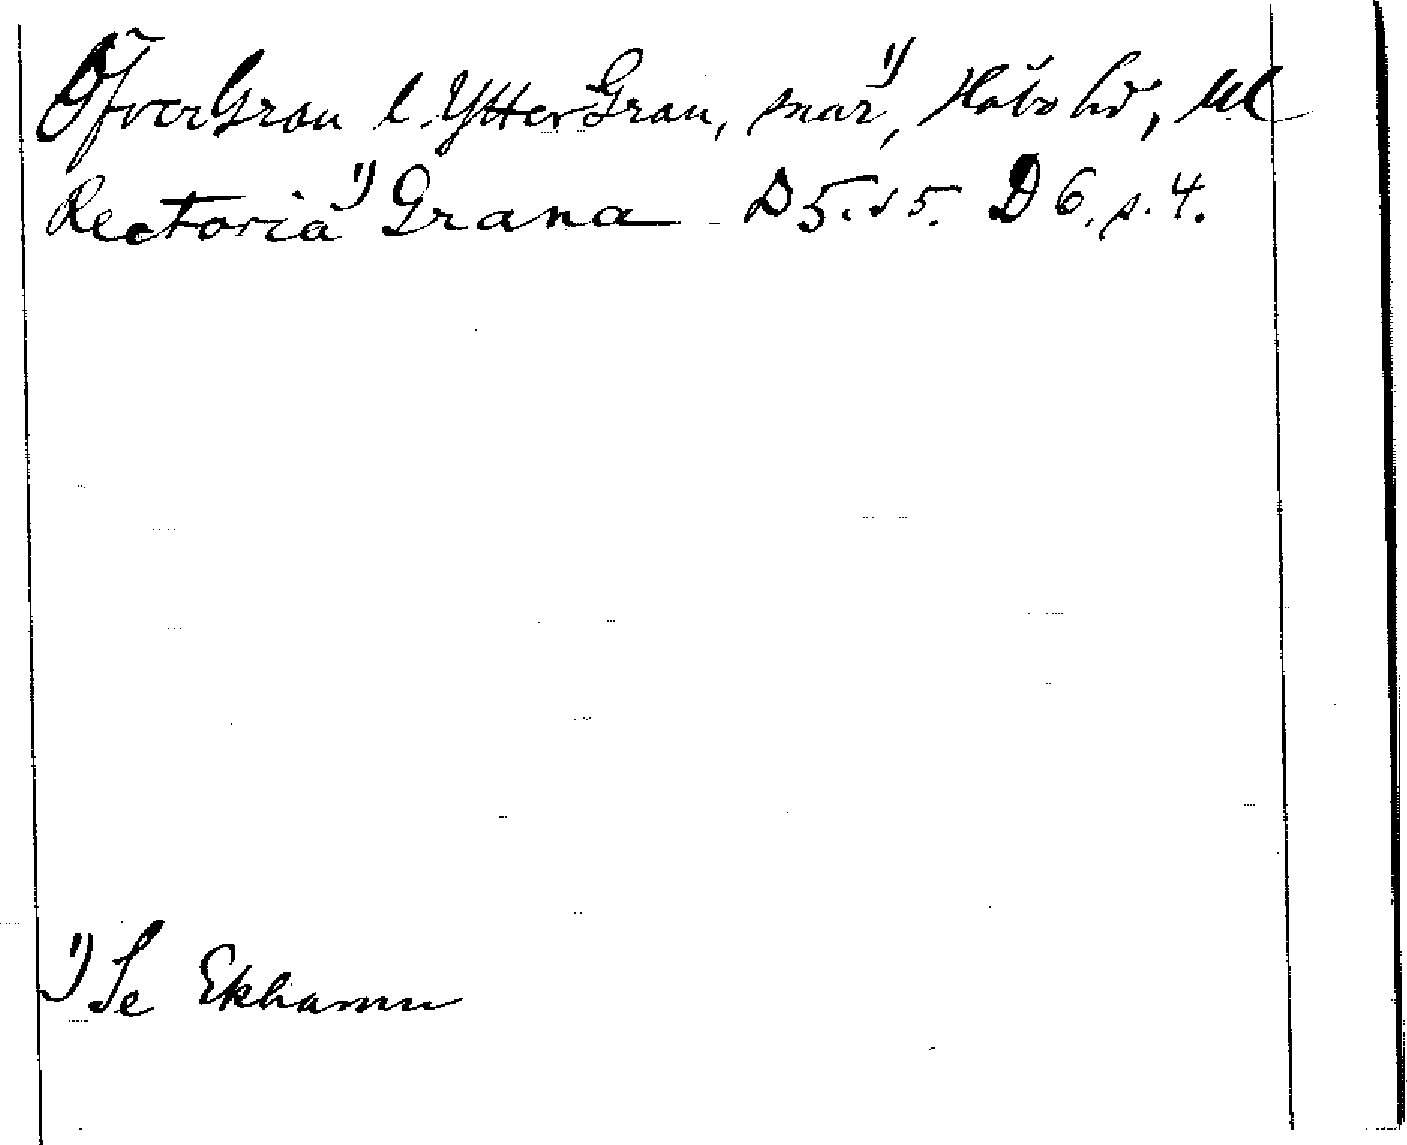 ÖfverGran l. YtterGran, snar¹⁾, Håbo hd, Upl
Rectoria¹⁾ Grana D 5. s 5. D 6. s. 4.
¹⁾ Se Ekhamn